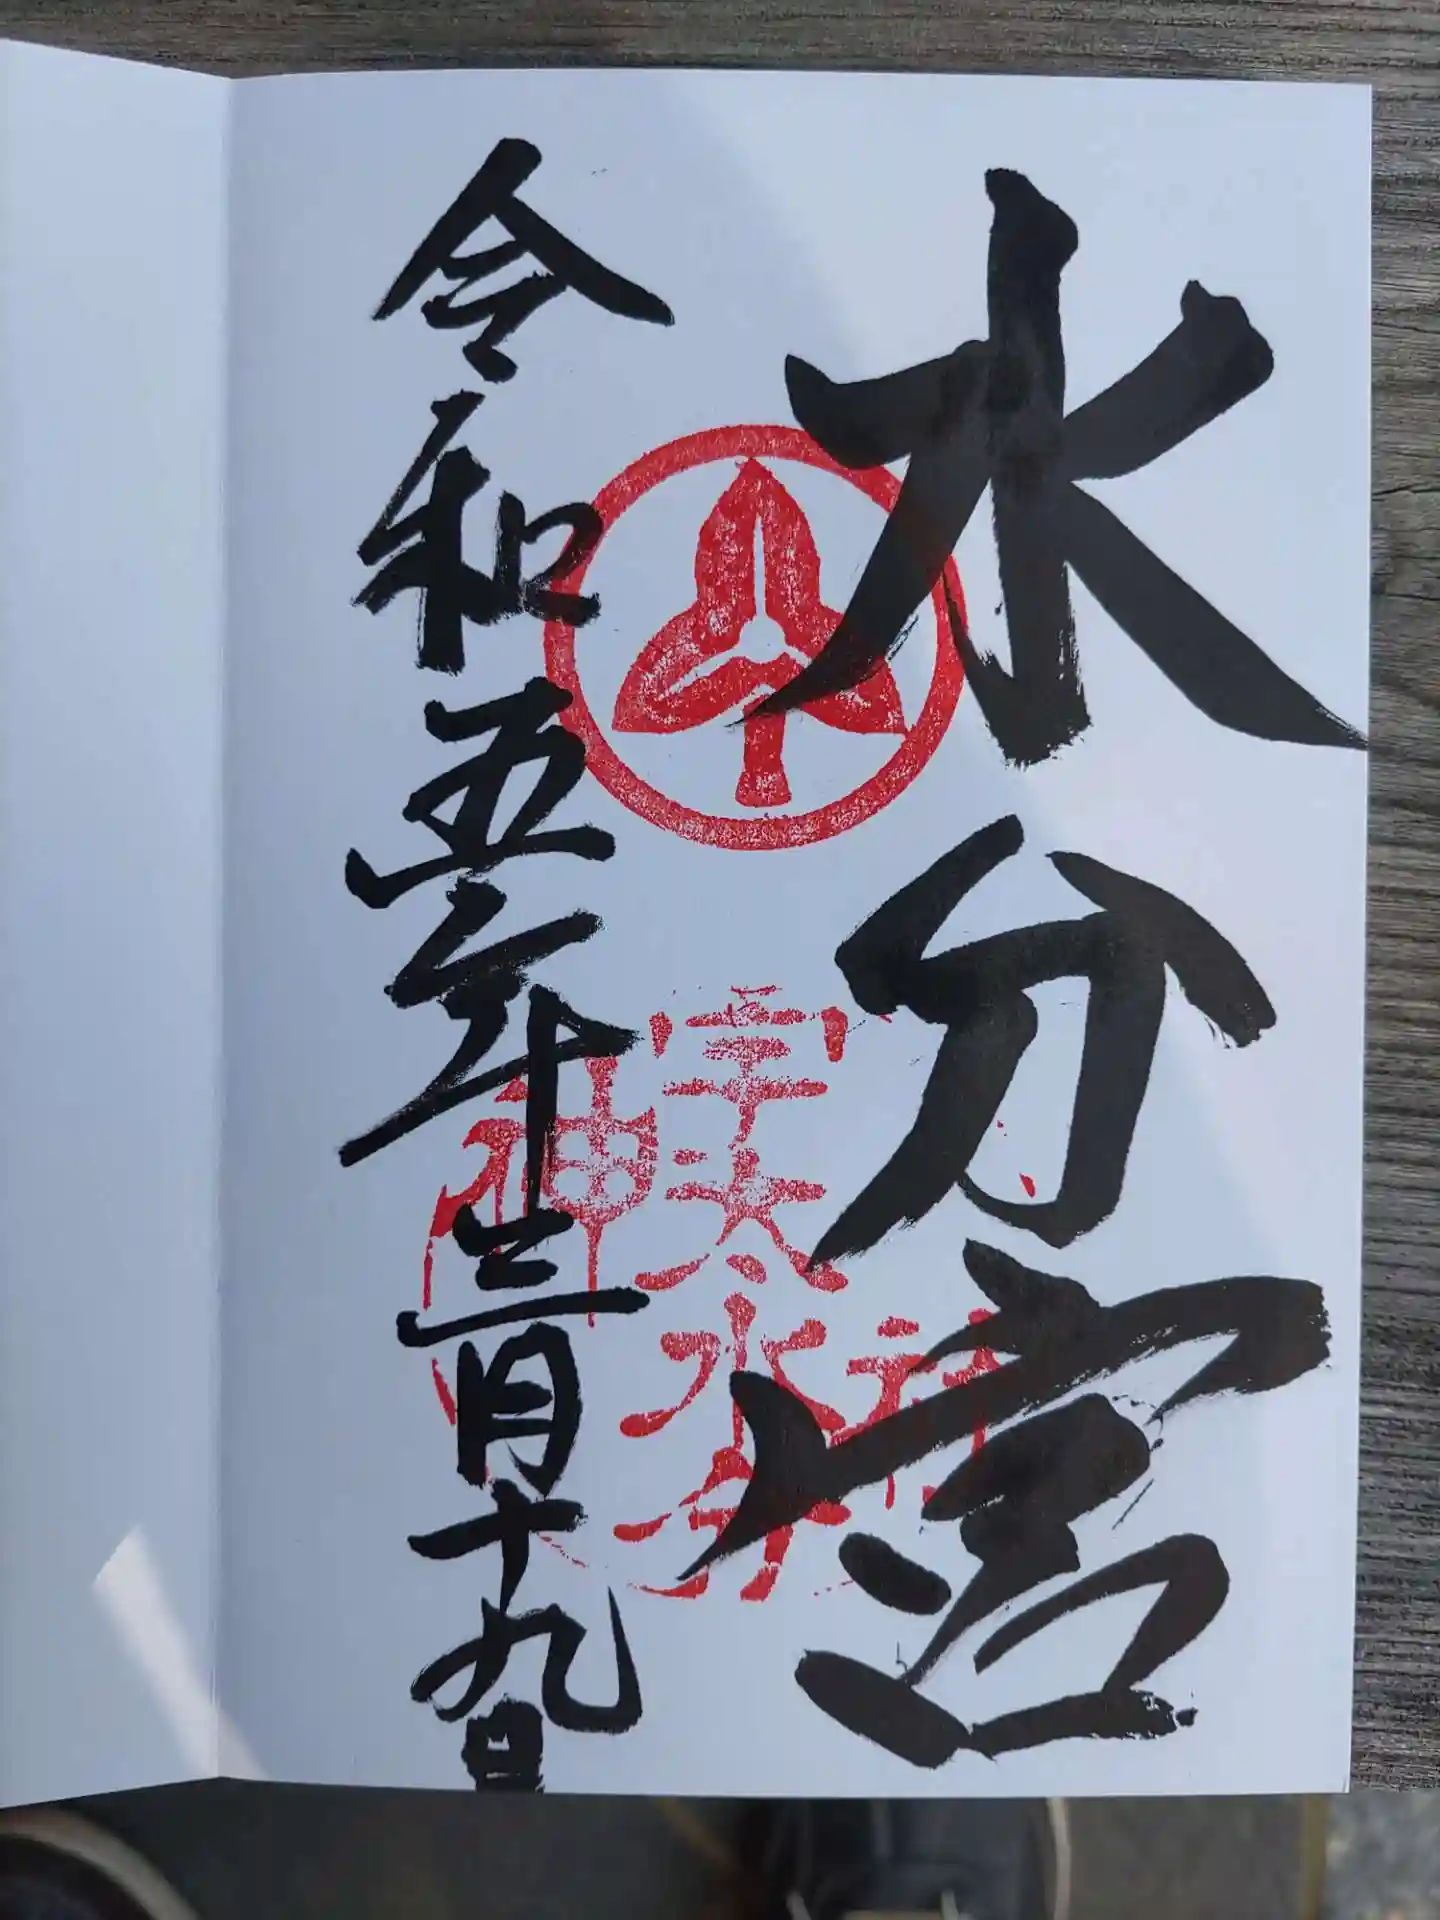 水分宮
宇太水分
神社
令和五年三月十九日